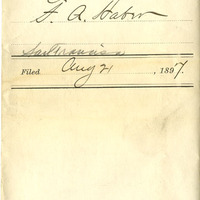 F. A. Haber
San Francisco
Filed Aug 21, 1897.